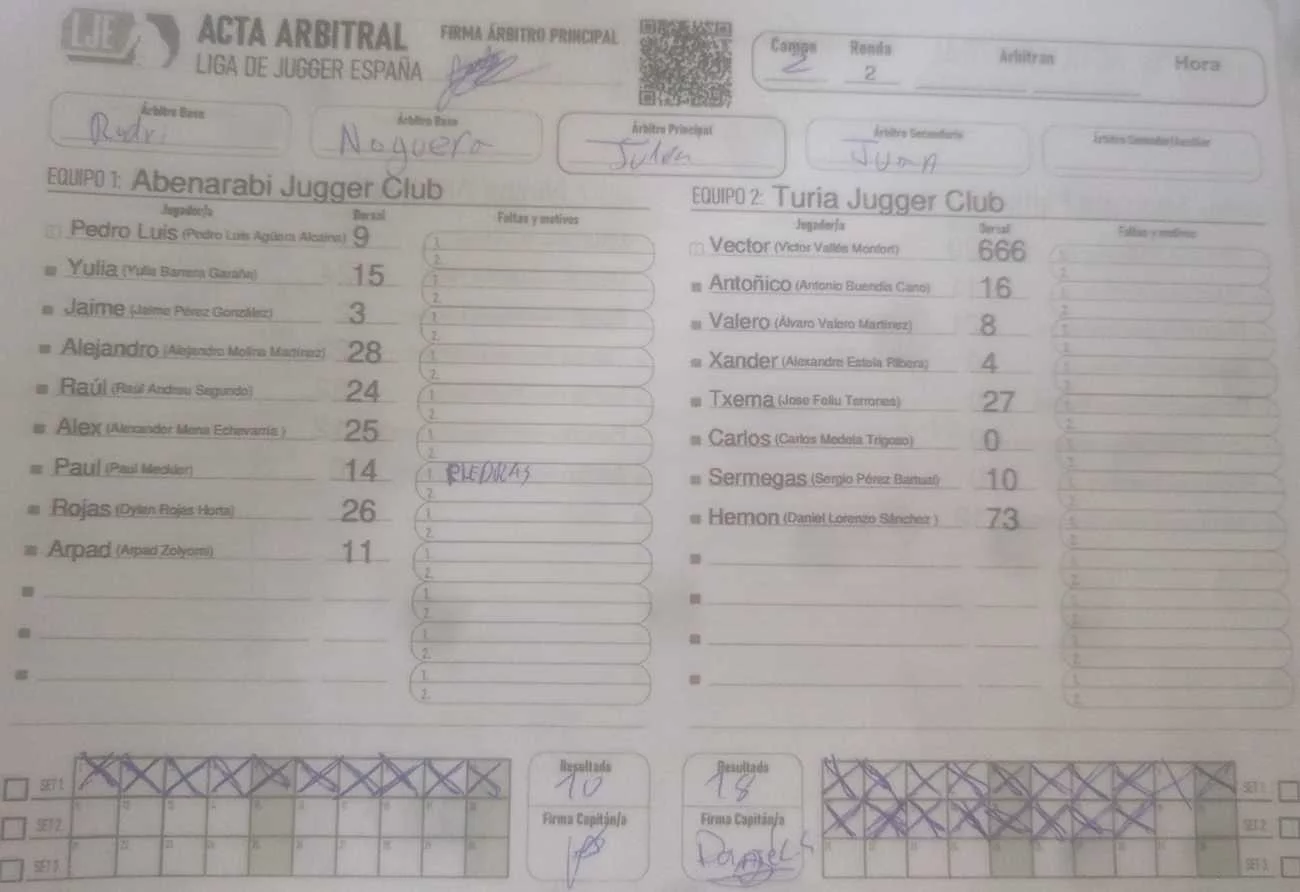 LJE
ACTA ARBITRAL
LIGA DE JUGGER ESPAÑA
FIRMA ÁRBITRO PRINCIPAL
Campo Ronda Arbitran Hora
2 2
Árbitro Base Árbitro Base Árbitro Principal Árbitro Secundario
Rodri Noguera Julen Juna
EQUIPO 1: Abenarabi Jugger Club
Jugador/a Dorsal Faltas y motivos
Pedro Luis (Pedro Luis Agüera Alcaina) 9
Yulia (Yulia Barrera Garaña) 15
Jaime (Jaime Pérez González) 3
Alejandro (Alejandro Molina Martínez) 28
Raúl (Raúl Andreu Segundo) 24
Alex (Alexander Mena Echevarría ) 25
Paul (Paul Meckler) 14 1. PIEDRAS
Rojas (Dylan Rojas Horta) 26
Arpad (Arpad Zolyomi) 11
EQUIPO 2: Turia Jugger Club
Jugador/a Dorsal Faltas y motivos
Vector (Victor Vallés Monfort) 666
Antoñico (Antonio Buendía Cano) 16
Valero (Álvaro Valero Martínez) 8
Xander (Alexandre Estela Ribera) 4
Txema (Jose Feliu Terrones) 27
Carlos (Carlos Medela Trigoso) 0
Sermegas (Sergio Pérez Bartual) 10
Hemon (Daniel Lorenzo Sánchez ) 73
SET 1
SET 2
SET 3
Resultado
10
Firma Capitán/a
Resultado
18
Firma Capitán/a
Daniel
SET 1
SET 2
SET 3